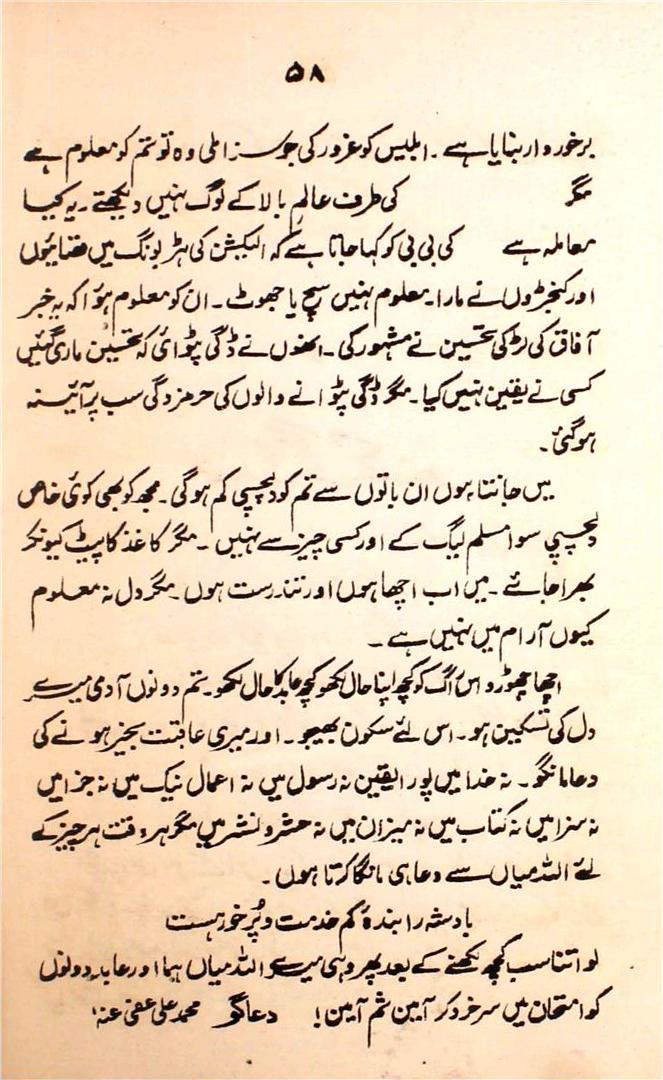 ۵۸
برخوردار بنایا ہے ۔ ابلیس کو غرور کی جو سزا ملی وہ تو تم کو معلوم ہے
مگر کی طرف عالم بالا کے لوگ نہیں دیکھتے ۔ یہ کیا
معاملہ ہے کی بی بی کو کہا جاتا ہے کہ الیکشن کی ہڑبونگ میں قصائیوں
اور کنجڑوں نے مارا ۔ معلوم نہیں سچ یا جھوٹ ۔ ان کو معلوم ہوا کہ یہ خبر
آفاق کی لڑکی تحسین نے مشہور کی ۔ انھوں نے ڈگی پٹوائی کہ تحسین ماری گئیں
کسی نے یقین نہیں کیا ۔ مگر ڈگی پٹوانے والوں کی حرمزدگی سب پر آئینہ
ہو گئی ۔
میں جانتا ہوں ان باتوں سے تم کو دلچسپی کم ہوگی ۔ مجھ کو بھی کوئی خاص
دلچسپی سوا مسلم لیگ کے اور کسی چیز سے نہیں ۔ مگر کاغذ کا پیٹ کیونکر
بھرا جائے ۔ میں اب اچھا ہوں اور تندرست ہوں ۔ مگر دل نہ معلوم
کیوں آرام میں نہیں ہے ۔
اچھا چھوڑو اس راگ کو کچھ اپنا حال لکھو کچھ عابد کا حال لکھو ۔ تم دونوں آدمی میرے
دل کی تسکین ہو ۔ اس لئے سکون بھیجو ۔ اور میری عاقبت بخیر ہونے کی
دعا مانگو ۔ نہ خدا میں پورا یقین نہ رسول میں نہ اعمال نیک میں نہ جزا میں
نہ سزا میں نہ کتاب میں نہ میزان میں نہ حشر و نشر میں مگر ہر وقت ہر چیز کے
لئے اللہ میاں سے دعا ہی مانگا کرتا ہوں ۔
بادشہ را بندۂ کم خدمت و پُرخور ہست
لو اتنا سب کچھ لکھنے کے بعد پھر وہی میرے اللہ میاں ہما اور عابد دونوں
کو امتحان میں سرخرو کر آمین ثم آمین! دعاگو محمد علی عفی عنہ،